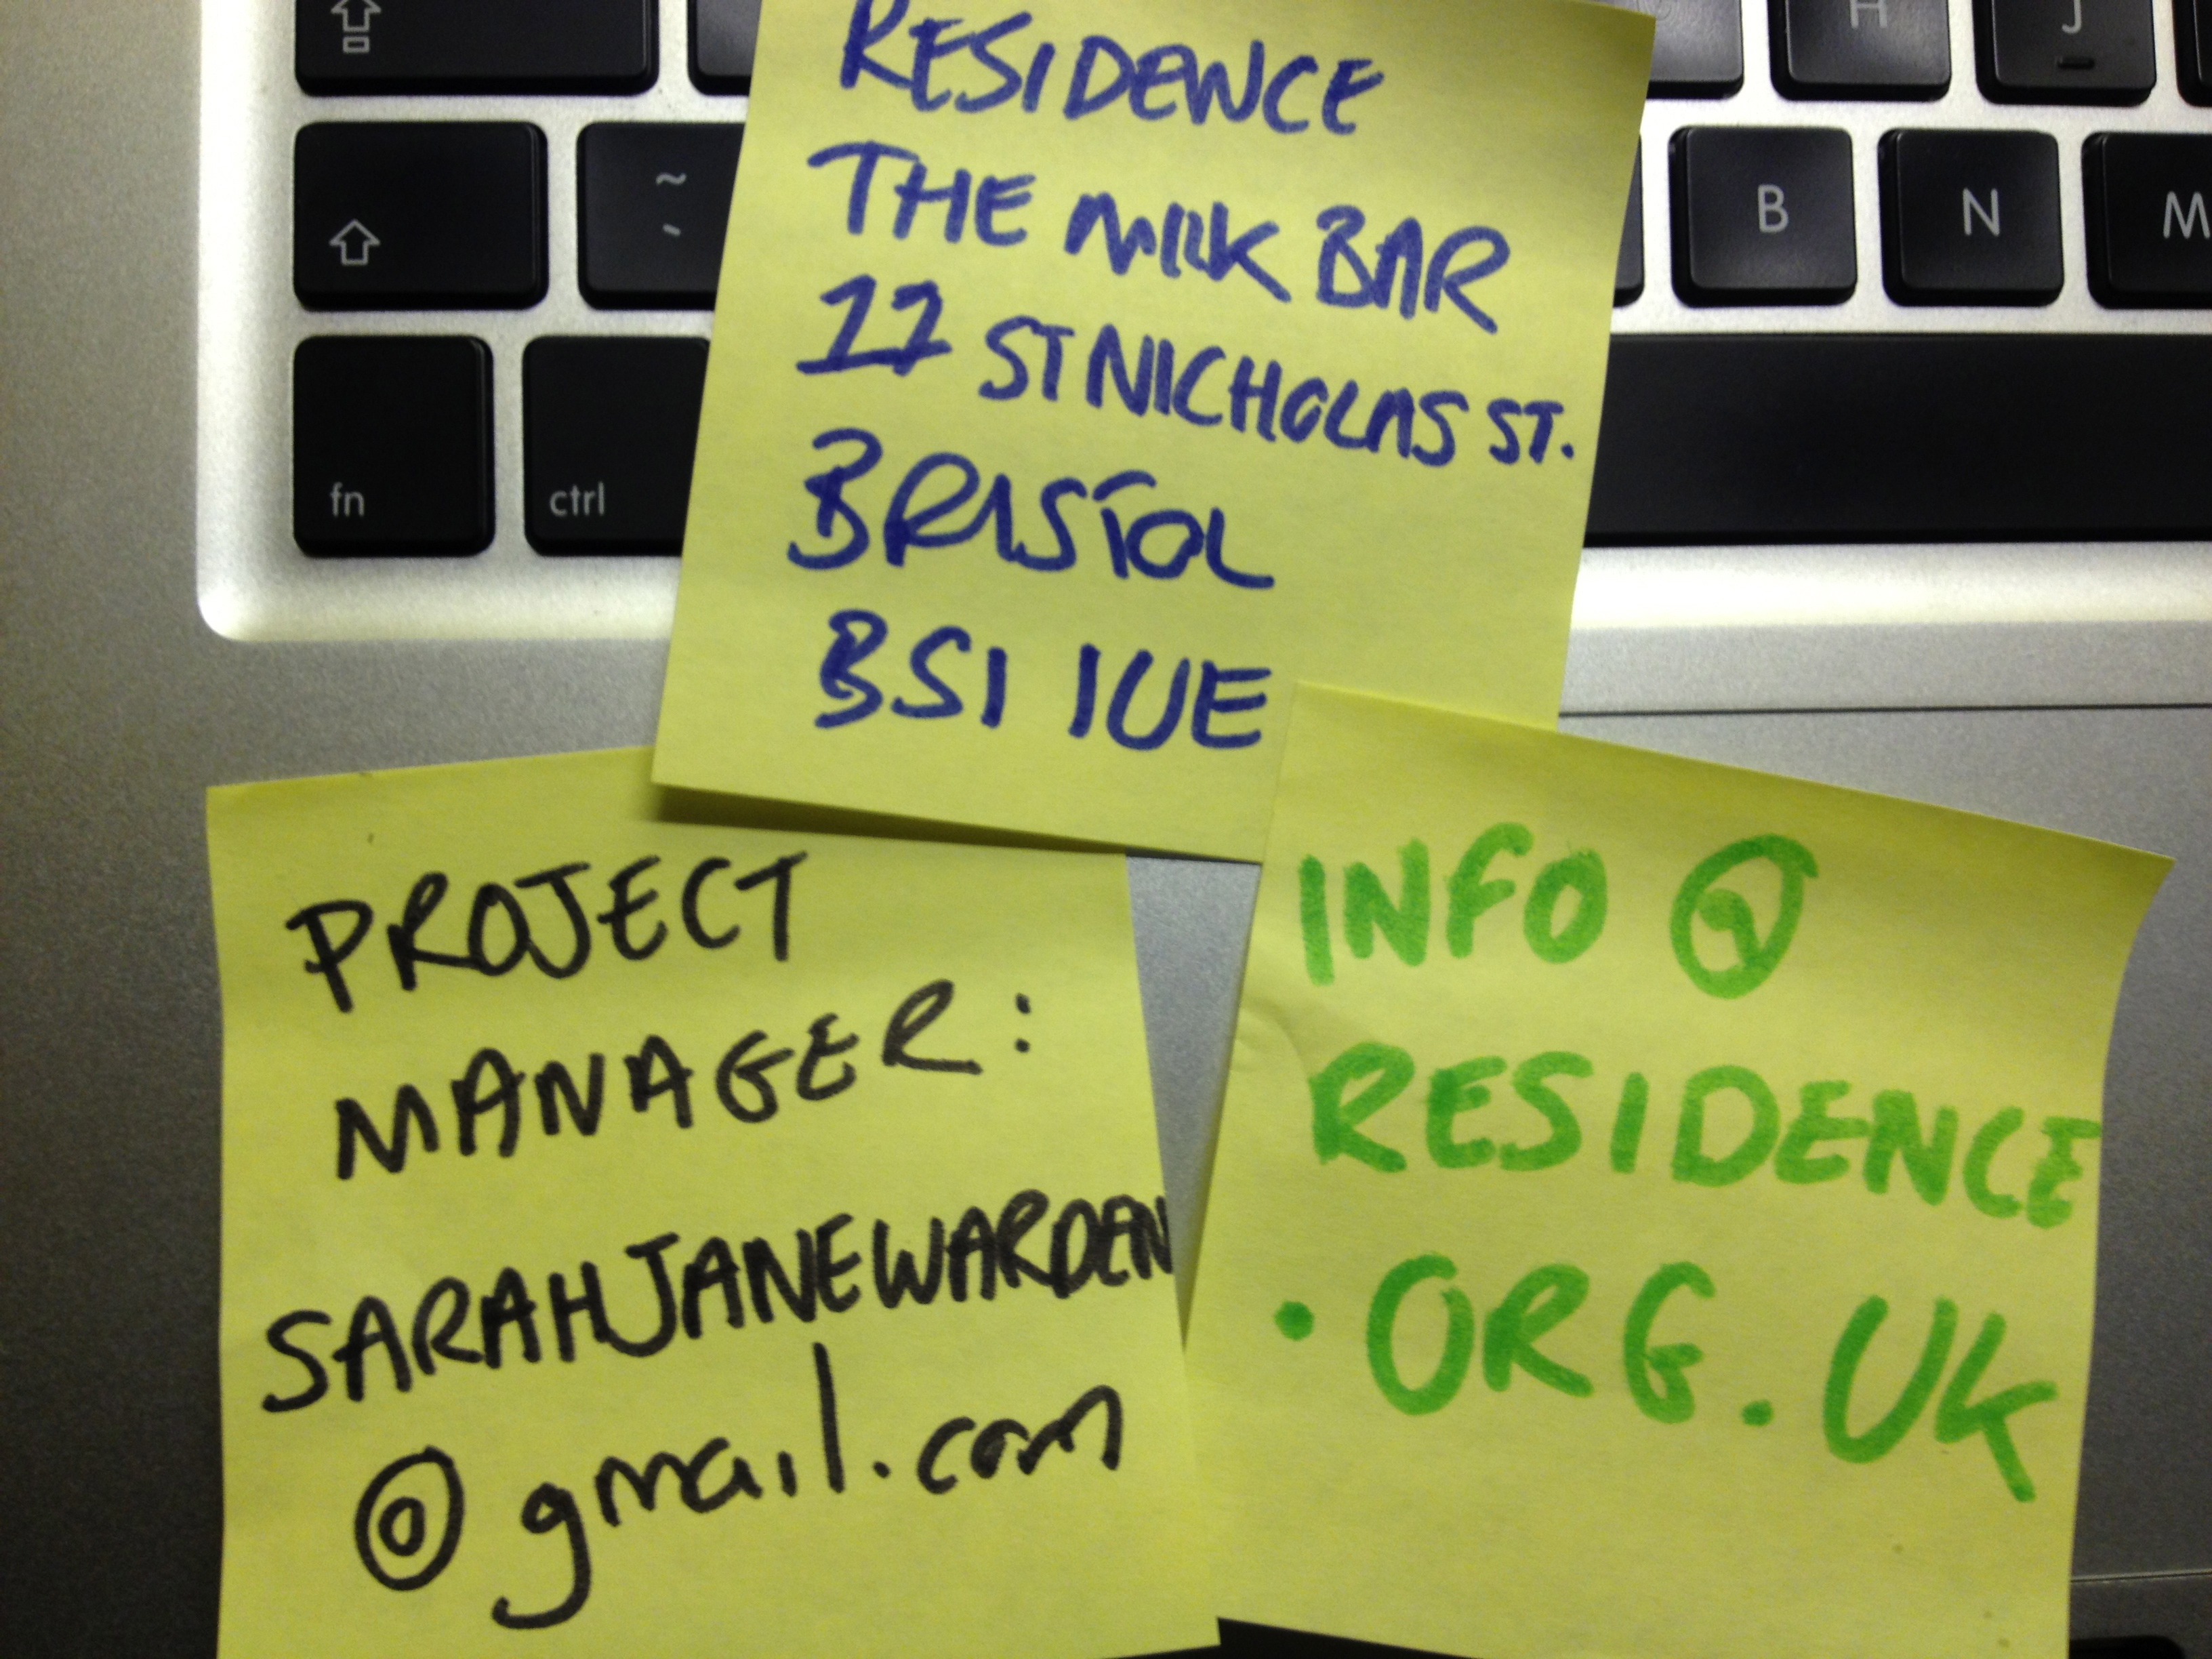 H
J
B
N
M
~
fn
ctrl
RESIDENCE
THE MILK BAR
ST NICHOLAS ST.
BRISTOL
BS1 1UE
PROJECT
MANAGER:
SARAHJANEWARDEN
@gmail.com
INFO @
RESIDENCE
.ORG.UK